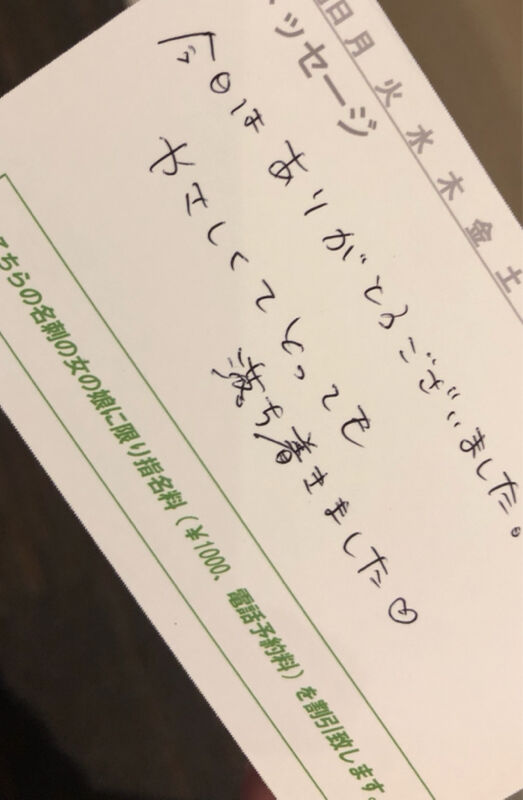 日月火水木金土
ッセージ
今日はありがとうございました。
やさしくてとっても
落ち着きました♡
こちらの名刺の女の娘に限り指名料（￥1000、電話予約料）を割引致します。